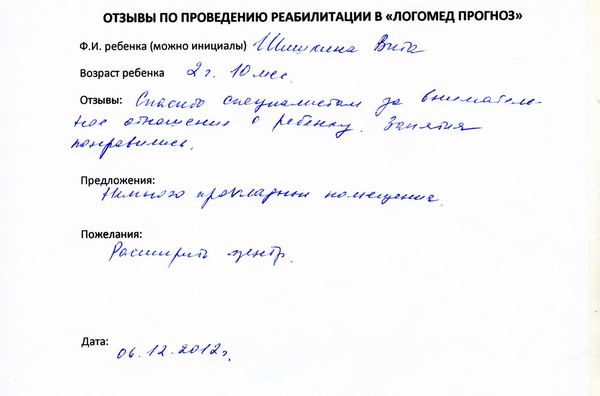 ОТЗЫВЫ ПО ПРОВЕДЕНИЮ РЕАБИЛИТАЦИИ В «ЛОГОМЕД ПРОГНОЗ»
Ф.И. ребенка (можно инициалы) Шишкина Вита
Возраст ребенка 2 г. 10 мес.
Отзывы: Спасибо специалистам за вниматель-
ное отношение к ребенку. Занятия
понравились.
Предложения:
Немного прохладные помещения.
Пожелания:
Расширить центр.
Дата: 06.12.2012г.